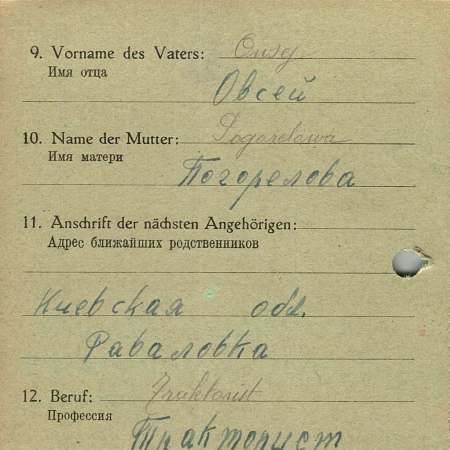 9. Vorname des Vaters: Owsej
Имя отца
Овсей
10. Name der Mutter: Pogorelowa
Имя матери
Погорелова
11. Anschrift der nächsten Angehörigen:
Адрес ближайших родственников
Киевская обл.
Раваловка
12. Beruf: Traktorist
Профессия
Тракторист